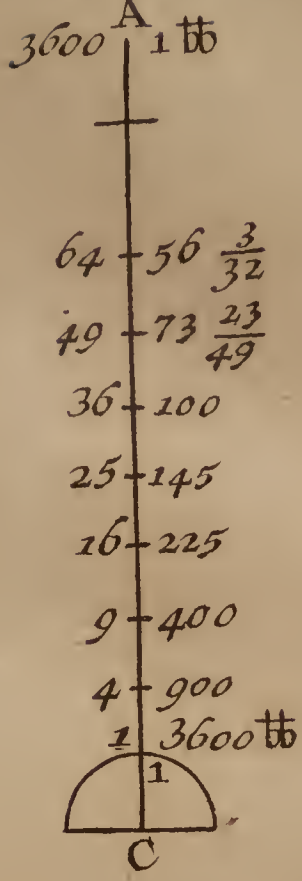 A
3600 1 ℔
64 56 3/32
49 73 23/49
36 100
25 145
16 225
9 400
4 900
1 3600 ℔
1
C